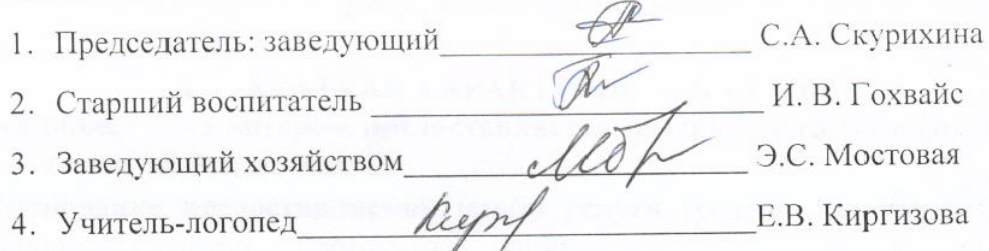 1. Председатель: заведующий С.А. Скурихина
2. Старший воспитатель И. В. Гохвайс
3. Заведующий хозяйством Э.С. Мостовая
4. Учитель-логопед Е.В. Киргизова